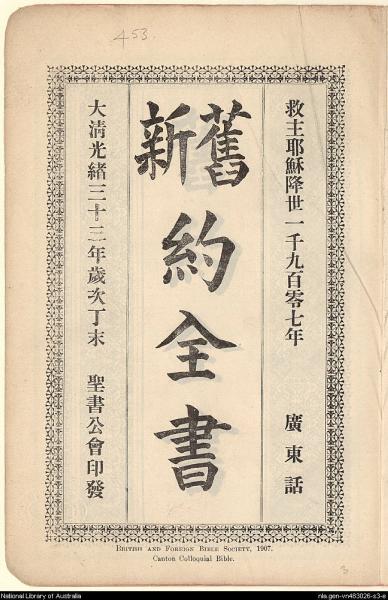 453
救主耶穌降世一千九百零七年 廣東話
舊新約全書
大清光緒三十三年歲次丁未 聖書公會印發
British and Foreign Bible Society, 1907.
Canton Colloquial Bible.
3
National Library of Australia
nla.gen-vn483026-s3-e